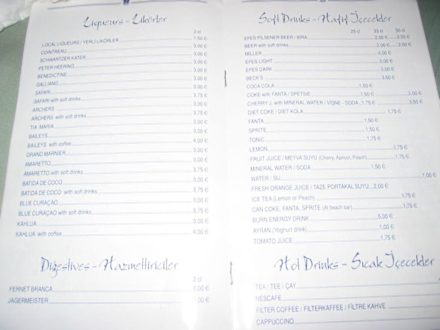 Liqueurs - Likörler
2 cl
LOCAL LIQUEURS / YERLİ LİKÖRLER 1,50 €
COINTREAU 3,00 €
SCHWARTZER KATER 3,00 €
PETER HEERING 3,00 €
BENEDICTINE 3,00 €
GALLIANO 3,00 €
SAFARI 3,00 €
SAFARI with soft drinks 3,75 €
ARCHERS 3,00 €
ARCHERS with soft drinks 3,75 €
TIA MARIA 3,00 €
BAILEYS 3,00 €
BAILEYS with coffee 4,00 €
GRAND MARNIER 3,00 €
AMARETTO 3,00 €
AMARETTO with soft drinks 3,75 €
BATIDA DE COCO 3,00 €
BATIDA DE COCO with soft drinks 3,75 €
BLUE CURAÇAO 3,00 €
BLUE CURAÇAO with soft drinks 3,75 €
KAHLUA 3,00 €
KAHLUA with coffee 4,00 €
Digestives - Hazmettiriciler
2 cl
FERNET BRANCA
JAGERMEISTER
Soft Drinks - Hafif İçecekler
25 cl 33 cl 50 cl
EFES PILSENER BEER / BIRA
BEER with soft drinks
MILLER
EFES LIGHT
EFES DARK
BECK'S
COCA COLA
COKE with FANTA / SPETSIE
CHERRY J. with MINERAL WATER / VIŞNE - SODA
DIET COKE / DIET KOLA
FANTA
SPRITE
TONIC
LEMON
FRUIT JUICE / MEYVA SUYU (Cherry, Apricot, Peach)
MINERAL WATER / SODA
WATER / SU
FRESH ORANGE JUICE / TAZE PORTAKAL SUYU 2,00 €
ICE TEA (Lemon or Peach)
CAN COKE, FANTA, SPRITE (At beach bar)
BURN ENERGY DRINK 5,00 €
AYRAN (Yoghurt drink) 1,00 €
TOMATO JUICE 1,75 €
Hot Drinks - Sıcak İçecekler
TEA / TEE / ÇAY
NESCAFE
FILTER COFFEE / FILTERKAFFEE / FİLTRE KAHVE
CAPPUCCINO